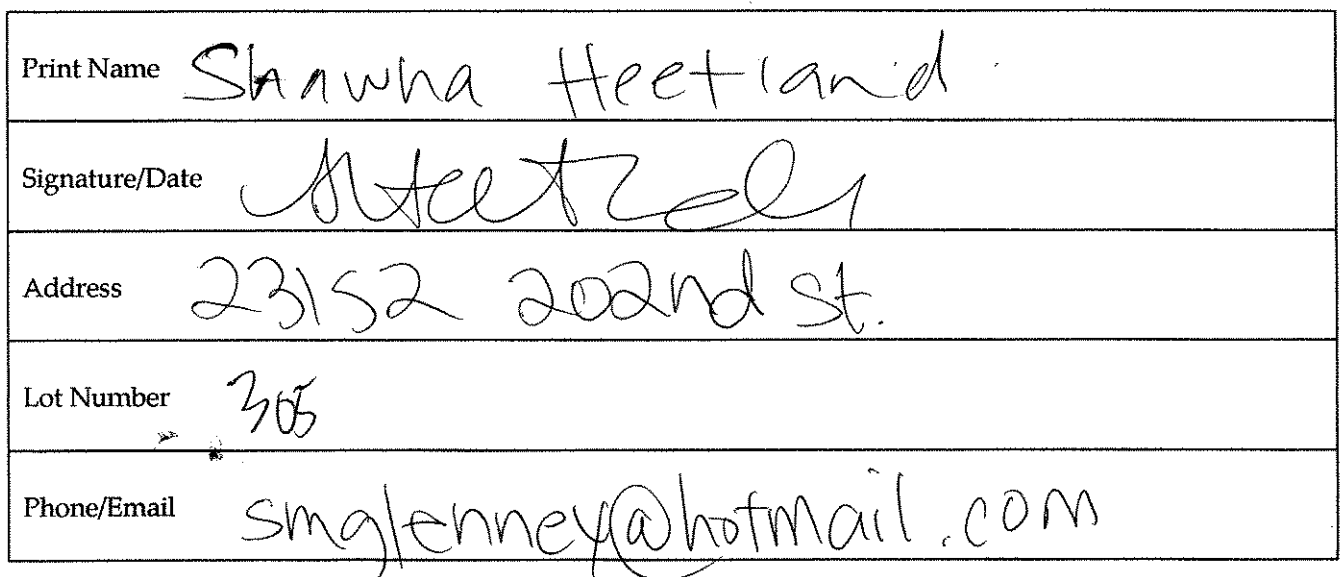 Print Name Shawna Heetland
Signature/Date
Address 23152 202nd St.
Lot Number 305
Phone/Email smglenney@hotmail.com